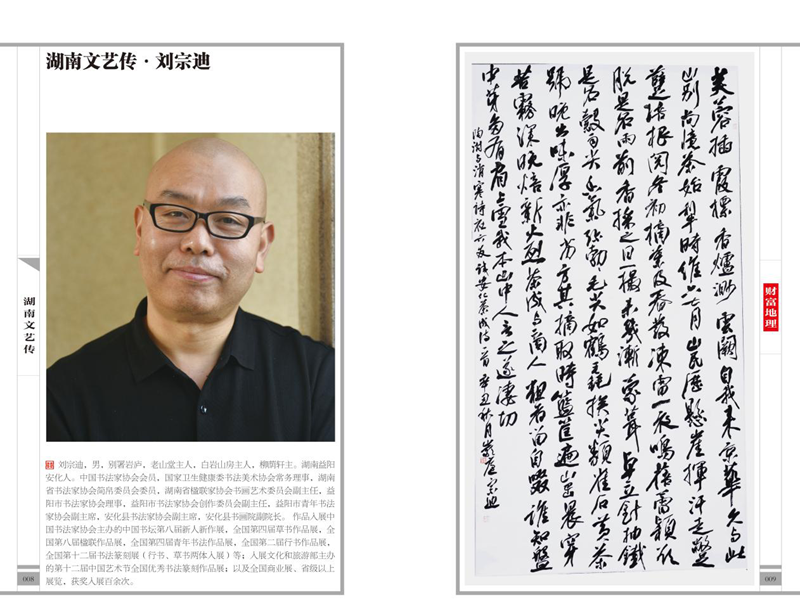 湖南文艺传·刘宗迪
湖南文艺传
刘宗迪，男，别署岩庐，老山堂主人，白岩山房主人，栁荫轩主。湖南益阳
安化人。中国书法家协会会员，国家卫生健康委书法美术协会常务理事，湖南
省书法家协会简帛委员会委员，湖南省楹联家协会书画艺术委员会副主任，益
阳市书法家协会理事，益阳市书法家协会创作委员会副主任，益阳市青年书法
家协会副主席，安化县书法家协会副主席，安化县书画院副院长。 作品入展中
国书法家协会主办的中国书坛第八届新人新作展，全国第四届草书作品展，全
国第八届楹联作品展，全国第四届青年书法作品展，全国第二届行书作品展，
全国第十二届书法篆刻展（行书、草书两体入展）等；入展文化和旅游部主办
的第十二届中国艺术节全国优秀书法篆刻作品展；以及全国商业展、省级以上
展览，获奖入展百余次。
008
芙蓉插霞標香爐渺雲闕自我来京華久与此
山别尚憶茶始犁時維六七月山民歷懸崖揮汗走蹩
躠培根閔冬初摘葉及春發凍雷一夜鳴搖雪穎欲
脱是名雨前香採之日一撮未幾漸蒙茸卓立針抽鐵
是名穀雨尖香氣弥勃毛尖如鶴毳挨尖類雀舌黄茶
號晚出味厚亦非劣方其摘取時籃筐遍山岊晨穿
苦霧深晚焙新火烈茶成与商人粗者留自啜誰知盤
中芽多有肩上血我本山中人言之遂凄切
陶澍与消寒詩安化茶成詩一首辛丑秋月宗迪
财富地理
009